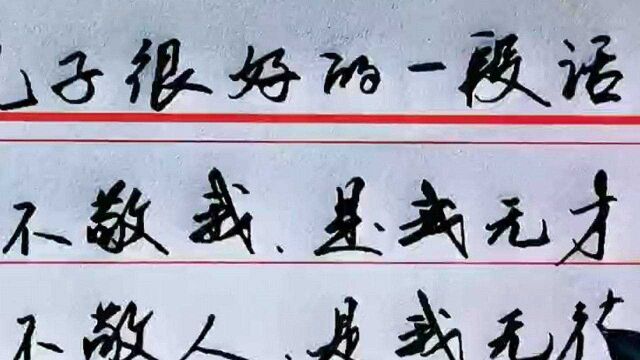 子很好的一段话
不敬我、是我无才
不敬人、是我无